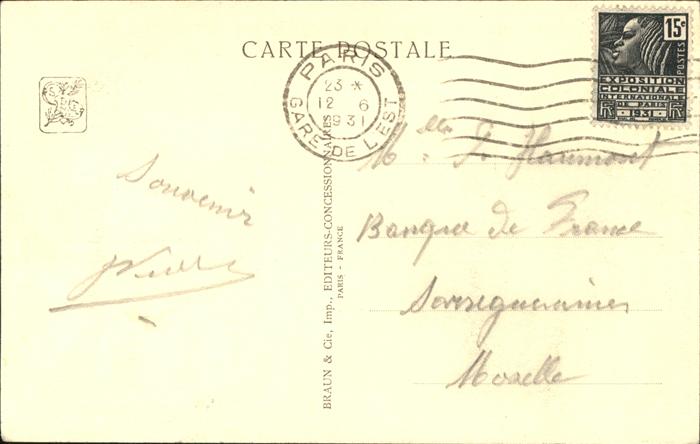 CARTE POSTALE
PARIS
23 *
12 6
1931
GARE DE L'EST
15c
POSTES
EXPOSITION
COLONIALE
INTERNATIONALE
DE PARIS
RF 1931 RF
Souvenir
BRAUN & Cie, Imp., EDITEURS-CONCESSIONNAIRES
PARIS - FRANCE
Melle
Banque de France
Sarreguemines
Moselle